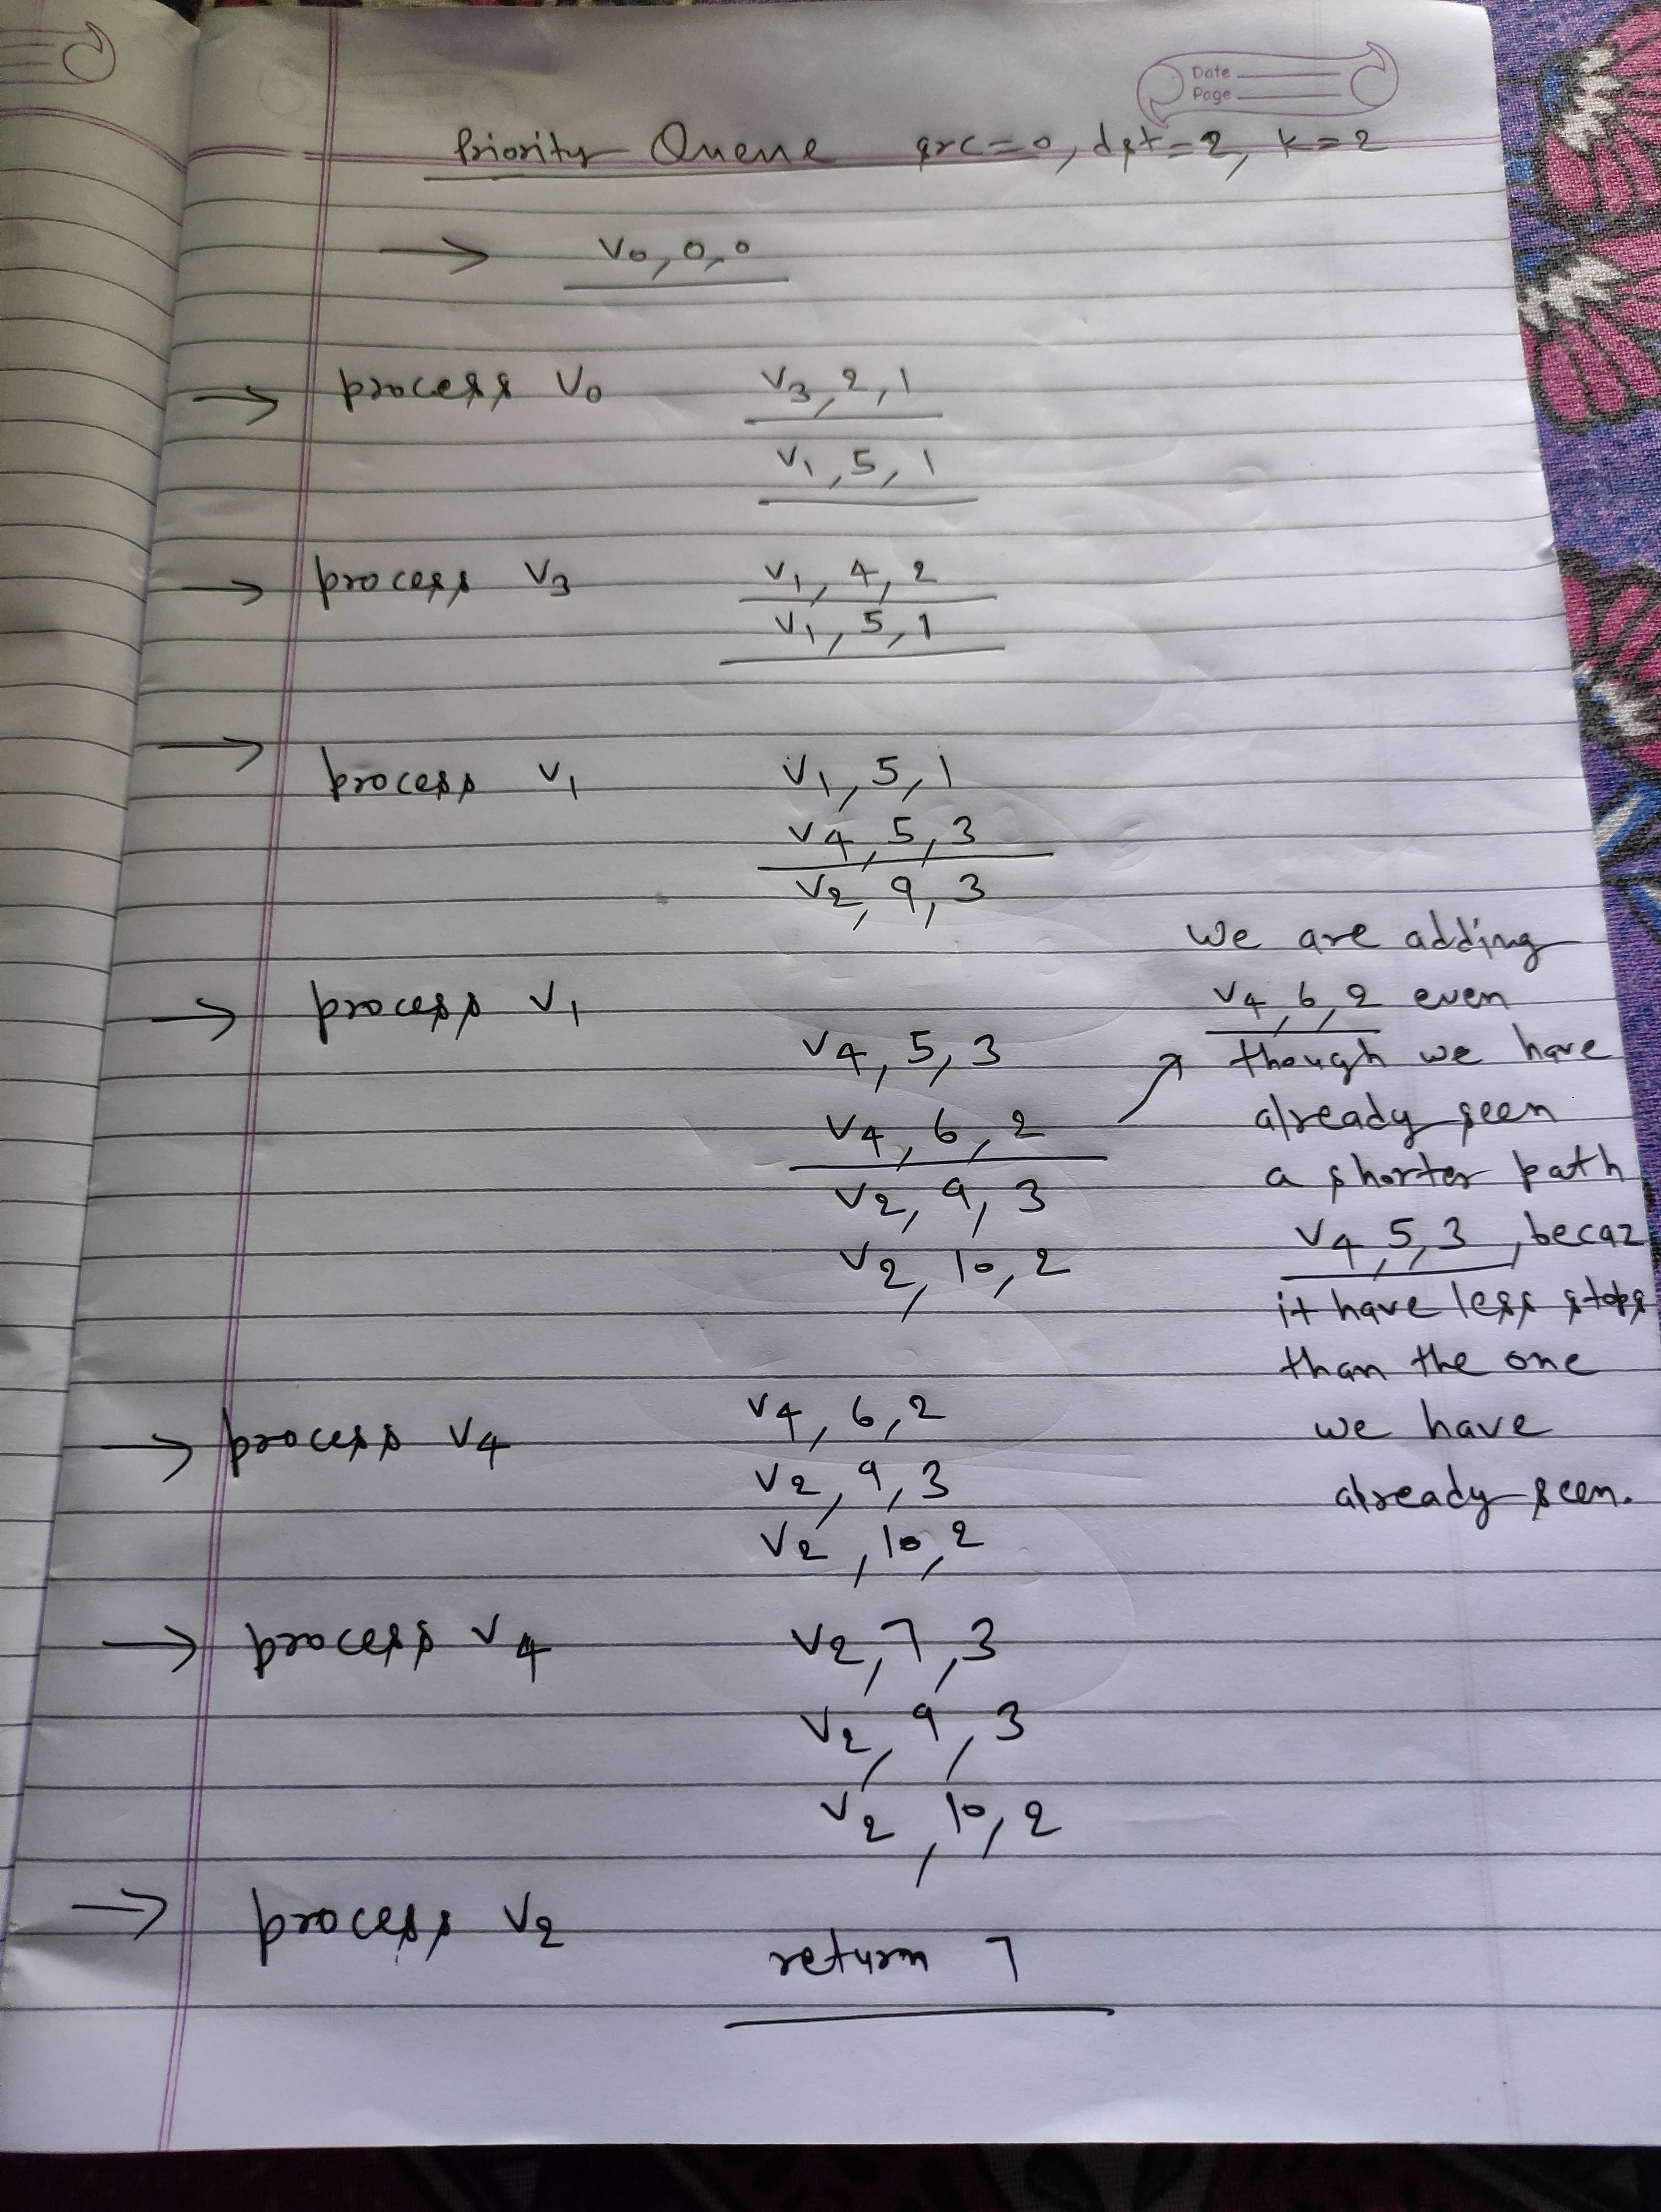 Date
Page
Priority Queue src=0, dst=2, k=2
→ V0, 0, 0
→ process V0 V3, 2, 1
V1, 5, 1
→ process V3 V1, 4, 2
V1, 5, 1
→ process V1 V1, 5, 1
V4, 5, 3
V2, 9, 3
→ process V1
V4, 5, 3
V4, 6, 2
V2, 9, 3
V2, 10, 2
We are adding
V4, 6, 2 even
though we have
already seen
a shorter path
V4, 5, 3, becaz
it have less stops
than the one
we have
already seen.
→ process V4 V4, 6, 2
V2, 9, 3
V2, 10, 2
→ process V4 V2, 7, 3
V2, 9, 3
V2, 10, 2
→ process V2
return 7